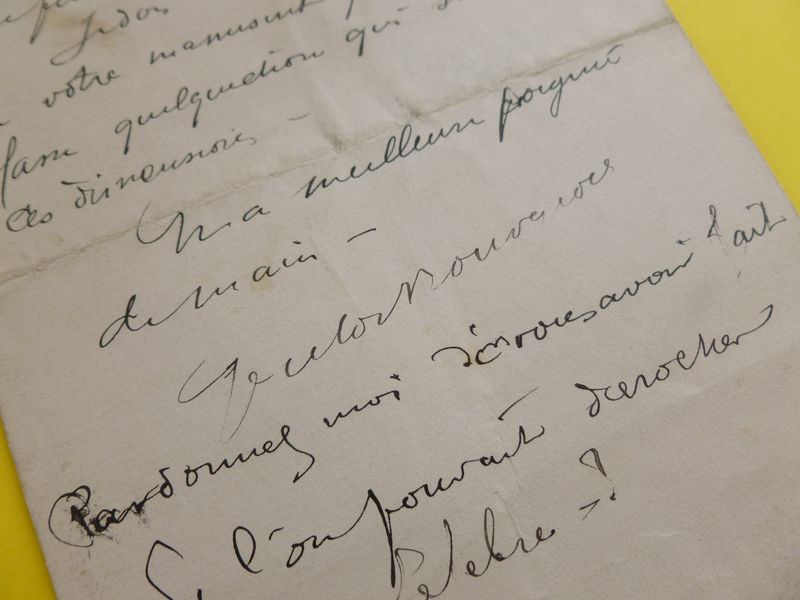 votre manuscrit
fasse quelquechose qui
ces dimensions –
Ma meilleure poignée
de main –
Pardonnez moi de vous avoir fait
Si l'on pouvait décrocher
Lefebre – ?